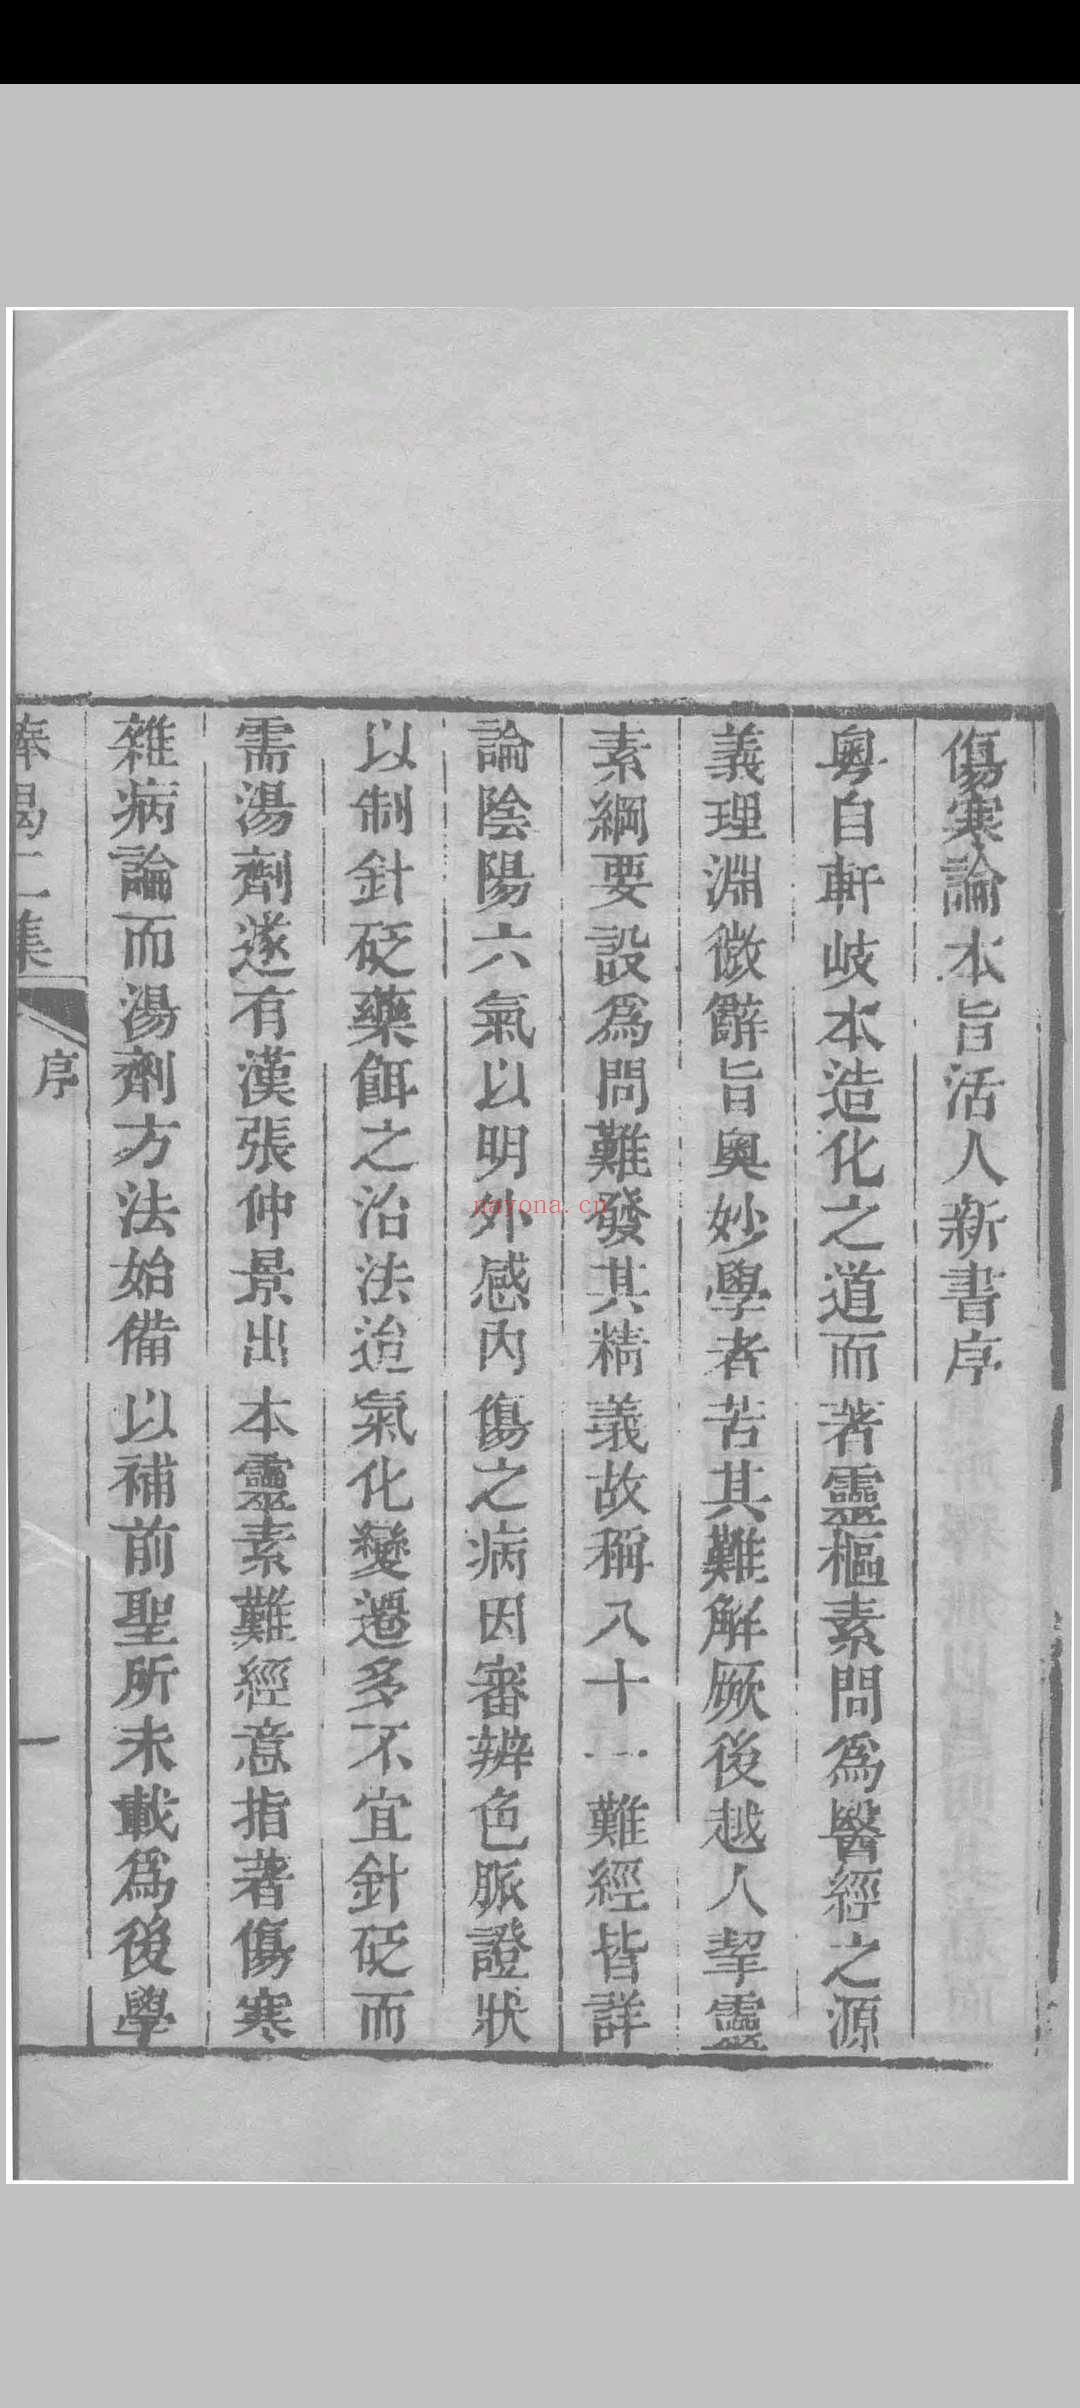 傷寒論本旨活人新書序
粵自軒岐本造化之道而著靈樞素問爲醫經之源
義理淵微辭旨奧妙學者苦其難解厥後越人挈靈
素綱要設爲問難發其精義故稱八十一難經皆詳
論陰陽六氣以明外感內傷之病因審辨色脈證狀
以制針砭藥餌之治法迨氣化變遷多不宜針砭而
需湯劑遂有漢張仲景出本靈素難經意指著傷寒
雜病論而湯劑方法始備以補前聖所未載爲後學
集
序
一
nayona.cn